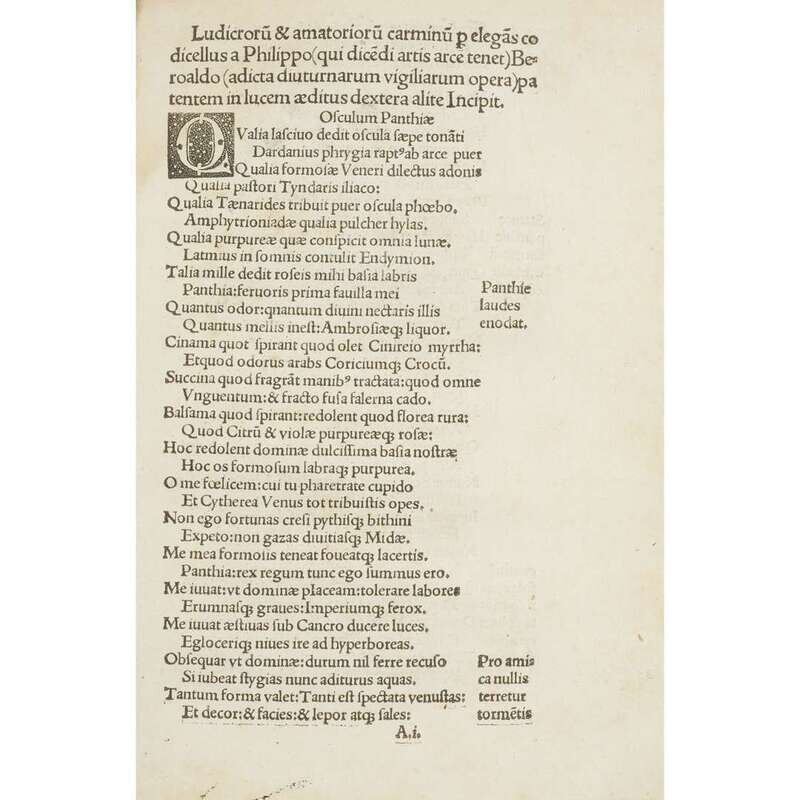 Ludicrorũ & amatoriorũ carminũ ꝑ elegãs co
dicellus a Philippo(qui dicẽdi artis arcẽ tenet)Be⸗
roaldo (adicta diuturnarum vigiliarum opera)pa
tentem in lucem æditus dextera alite Incipit.
Oſculum Panthiæ
QValia laſciuo dedit oſcula ſæpe tonãti
Dardanius phrygia raptꝰab arce puer
Qualia formoſæ Veneri dilectus adonis
Qualia paſtori Tyndaris iliaco:
Qualia Tænarides tribuit puer oſcula phœbo.
Amphytrioniadæ qualia pulcher hylas.
Qualia purpureæ quæ conſpicit omnia lunæ.
Latmius in ſomnis contulit Endymion.
Talia mille dedit roſeis mihi baſia labris
Panthia:feruoris prima fauilla mei
Panthie
Quantus odor:qnantum diuini nectaris illis
laudes
Quantus mellis ineſt:Ambroſiæqꝫ liquor.
enodat.
Cinama quot ſpirant quod olet Cinireio myrrha:
Etquod odorus arabs Coriciumqꝫ Crocũ.
Succina quod fragrãt manibꝰ tractata:quod omne
Vnguentum:& fracto fuſa falerna cado.
Balſama quod ſpirant:redolent quod florea rura:
Quod Citrũ & violæ purpureæqꝫ roſæ:
Hoc redolent dominæ dulciſſima baſia noſtræ
Hoc os formoſum labraqꝫ purpurea.
O me fœlicem:cui tu pharetrate cupido
Et Cytherea Venus tot tribuiſtis opes.
Non ego fortunas creſi pythiſqꝫ bithini
Expeto:non gazas diuitiaſqꝫ Midæ.
Me mea formoſis teneat foueatqꝫ lacertis.
Panthia:rex regum tunc ego ſummus ero.
Me iuuat:vt dominæ placeam:tolerare labores
Erumnaſqꝫ graues:Imperiumqꝫ ferox.
Me iuuat æſtiuas ſub Cancro ducere luces.
Egloceriqꝫ niues ire ad hyperboreas.
Obſequar vt dominæ:durum nil ferre recuſo
Pro ami⸗
Si iubeat ſtygias nunc aditurus aquas.
ca nullis
Tantum forma valet:Tanti eſt ſpectata venuſtas:
terretur
Et decor:& facies:& lepor atqꝫ ſales:
tormẽtis
A.i.